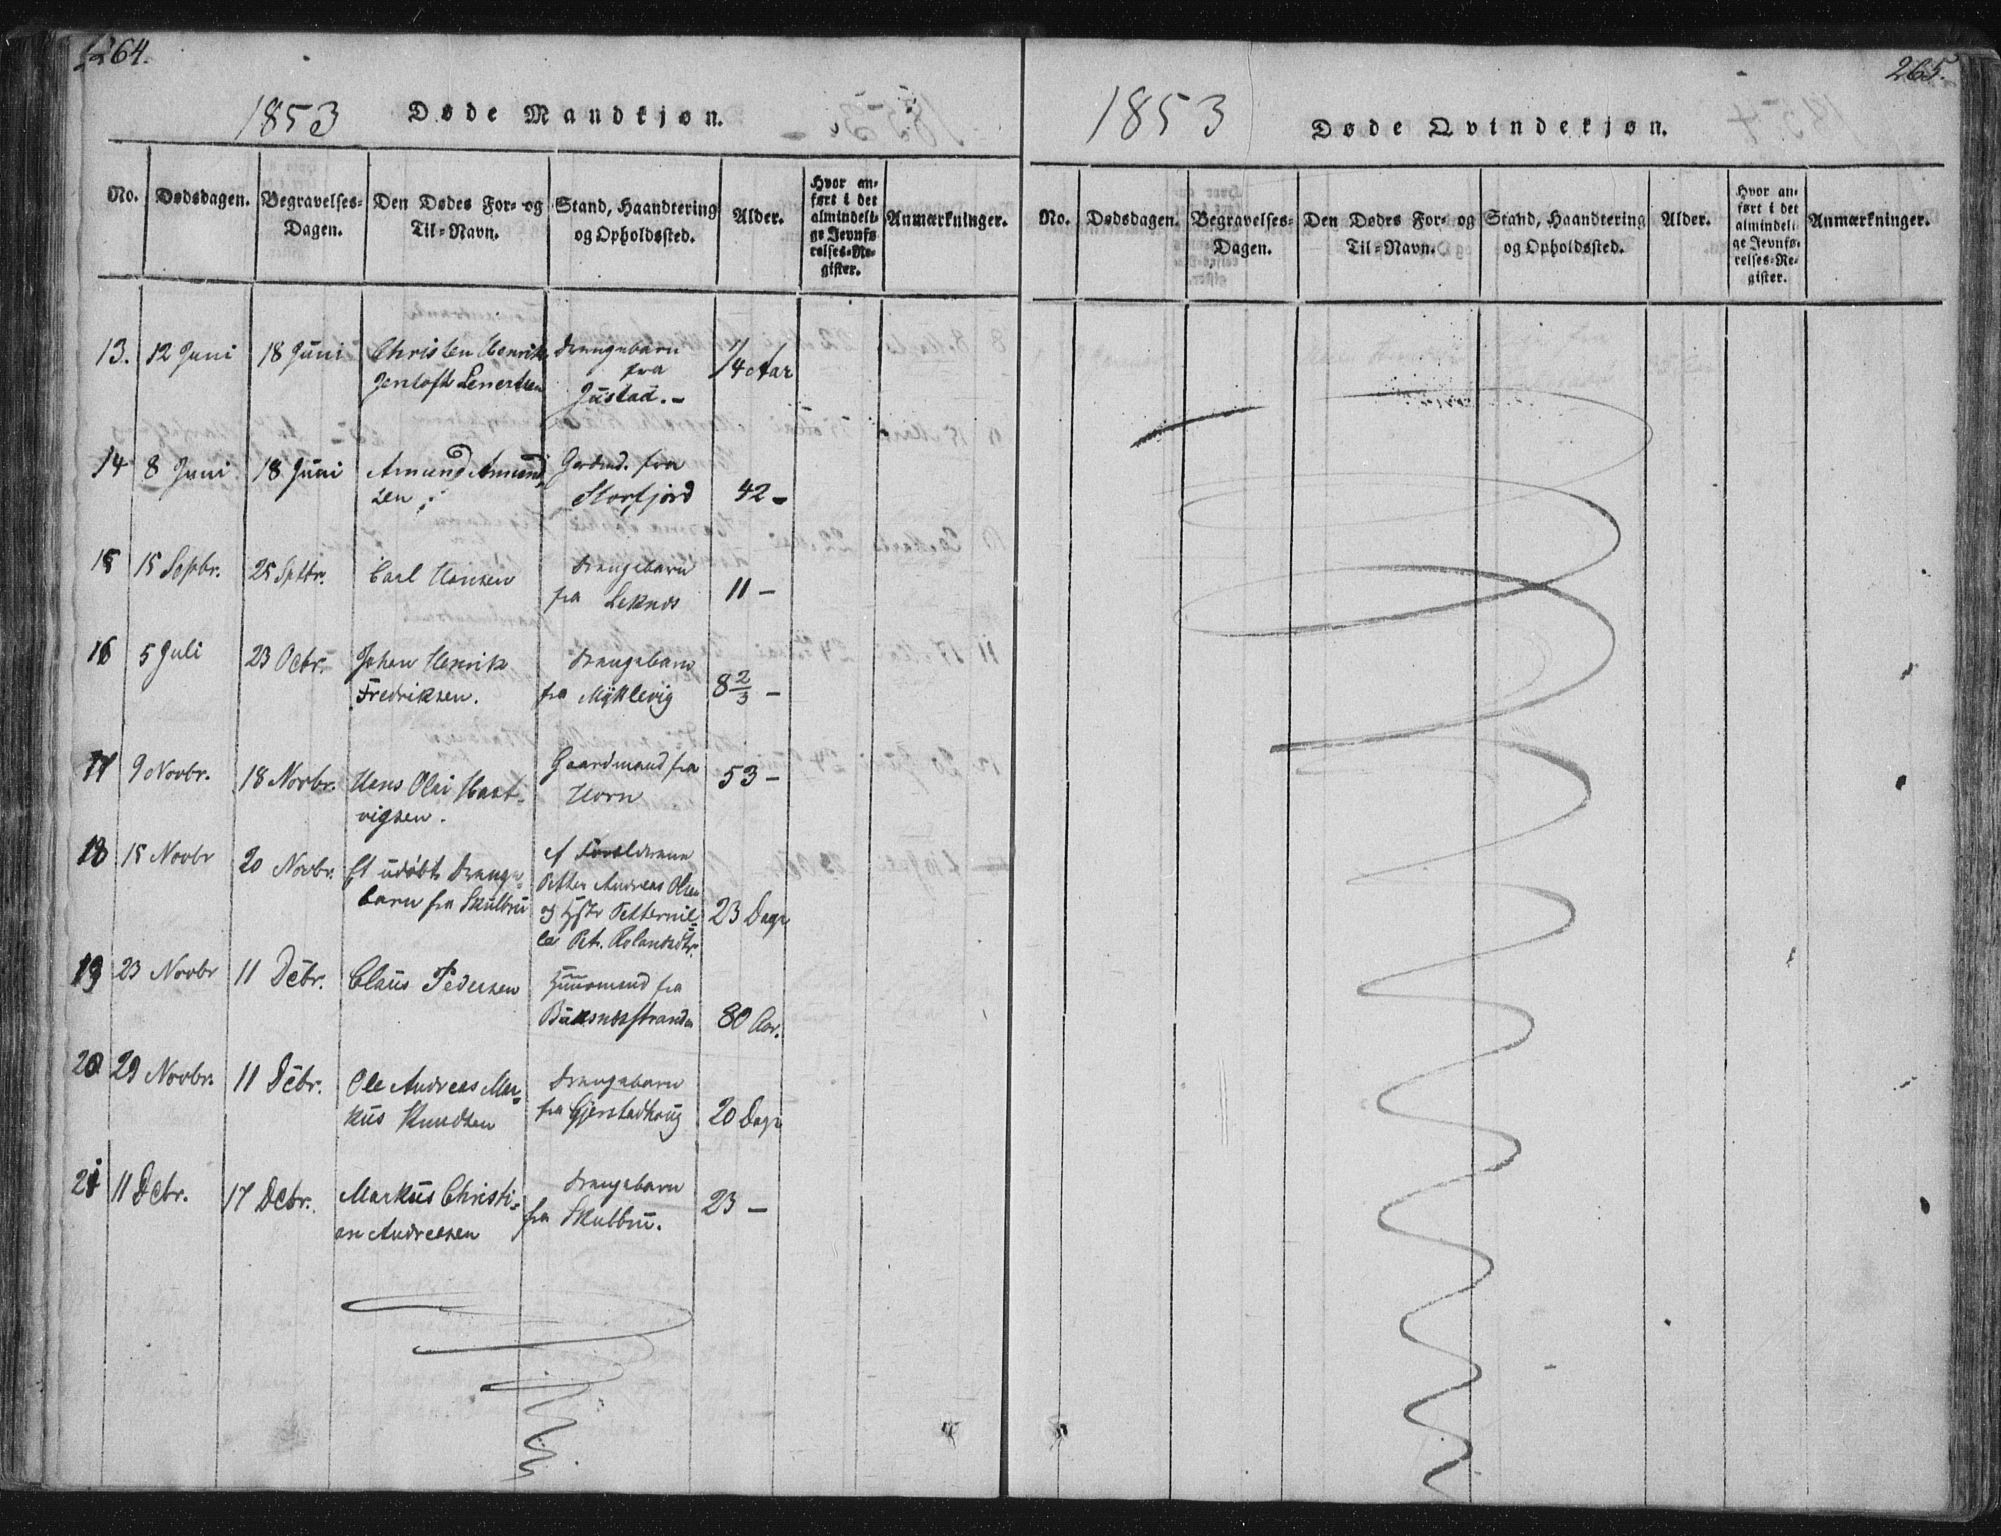 264.
1853 Døde Mandkjøn.
No. Dødsdagen. Begravelses-Dagen. Den Dødes For- og Til-Navn. Stand, Haandtering og Opholdssted. Alder. Hvor anført i det almindelige Jevnførelses-Register. Anmærkninger.
13. 12 Juni 18 Juni Christen Henrik Drengebarn 1/4 Aar
Jentoft Lenertsen fra
Justad.-
14 8 Juni 18 Juni Amund Amund- Gaardmd. fra
sen Storfjord 42-
15 15 Sepbr. 25 Sptbr. Carl Hansen Drengebarn
fra Leknes 11-
16 5 Juli 23 Octbr. Johan Henrik Drengebarn
Fredriksen. fra Myklevig 8 2/3 -
17 9 Novbr. 18 Novbr. Hans Olai Hart- Gaardmand fra 53-
vigsen. Horn
18 15 Novbr 20 Novbr. Et udöbt Drenge- af Forældrene
barn fra Skulbru Petter Andreas Olsen
og Hstr Petternil- 23 Dage
la Rolandsdtr.
19 23 Novbr 11 Dcbr. Claus Pedersen Huusmand fra
Buksnesstranden 80 Aar.
20 29 Novbr. 11 Dcbr. Ole Andreas Mar- Drengebarn
kus Knudsen fra Gjerstadhaug 20 Dage
21 11 Dcbr. 17 Dcbr. Markus Christi- Drengebarn 23 -
an Andreesen fra Skulbru.
265.
1853 Døde Qvindekjøn.
No. Dødsdagen. Begravelses-Dagen. Den Dødes For- og Til-Navn. Stand, Haandtering og Opholdssted. Alder. Hvor anført i det almindelige Jevnførelses-Register. Anmærkninger.